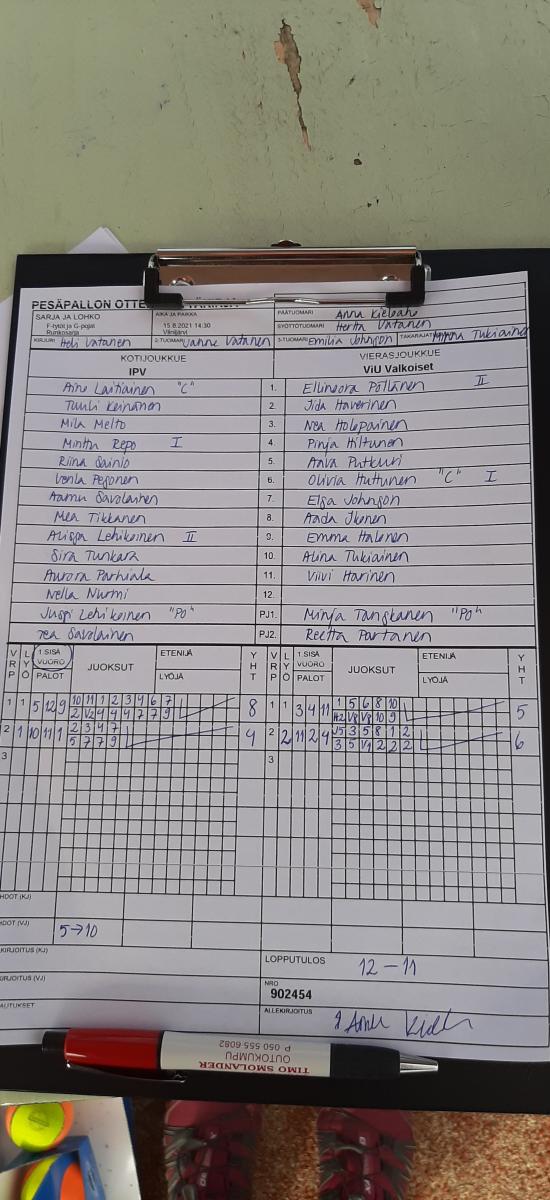 PESÄPALLON OTTE
SARJA JA LOHKO
F-tytöt ja G-pojat
Runkosarja
AIKA JA PAIKKA
15.8.2021 14:30
Viinijärvi
PÄÄTUOMARI Anna
SYÖTTÖTUOMARI Hertta Vatanen
KIRJURI Heli Vatanen
2-TUOMARI Janne Vatanen
3-TUOMARI Emilia Johnson
TAKARAJATUOMARI Tukiainen
KOTIJOUKKUE
IPV
VIERASJOUKKUE
ViU Valkoiset
Aino Laitiainen "C" 1. Ellinoora Pöllänen II
Tuuli Keinänen 2. Iida Haverinen
Mila Melto 3. Nea Holopainen
Minttu Repo I 4. Pinja Hiltunen
Riina Sainio 5. Aava Putkuri
Venla Pesonen 6. Olivia Huttunen "C" I
Aamu Savolainen 7. Elsa Johnson
Mea Tikkanen 8. Aada Ikonen
Lehikoinen II 9. Emma Halonen
Sira Tunkara 10. Alina Tukiainen
Aurora Parhiala 11. Viivi Harinen
Nella Nurmi 12.
Jussi Lehikoinen "PO" PJ1. Minja Tanskanen "PO"
Tea Savolainen PJ2. Reetta Partanen
VRP LYÖ 1 SISÄ VUORO PALOT JUOKSUT ETENIJÄ LYÖJÄ YHT VRP LYÖ 1 SISÄ VUORO PALOT JUOKSUT ETENIJÄ LYÖJÄ YHT
1 1 5 12 9 10 11 1 2 3 4 6 7 8 1 1 3 4 11 1 5 6 8 10 5
2 V2 4 4 4 7 7 9 V8 V8 10 9
2 1 10 11 1 2 3 4 7 4 2 2 11 2 4 V5 3 5 8 1 2 6
5 7 7 9 3 5 V1 2 2 2
3 3
HDOT (KJ)
HDOT (VJ) 5→10
KIRJOITUS (KJ)
LOPPUTULOS 12 – 11
KIRJOITUS (VJ)
NRO
902454
AUTUKSET
ALLEKIRJOITUS
TIMO SMOLANDER
OUTOKUMPU
P. 050 555 6082